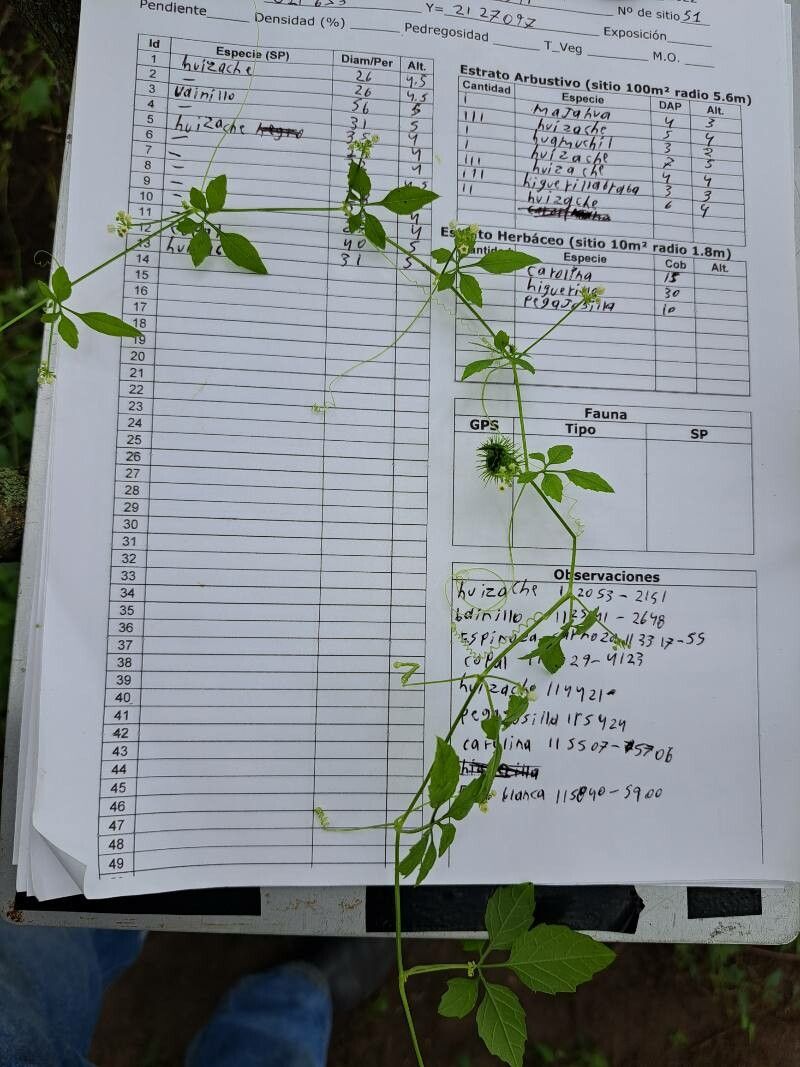 Y= 2127097
Nº de sitio 51
Pendiente____ Densidad (%) ____ Pedregosidad ____ T_Veg ____ Exposición____ M.O. ____
Id Especie (SP) Diam/Per Alt.
1 huizache 26 4.5
2 — 26 4.5
3 vainillo 56
4 — 31 5
5 huizache 4
6 — 4
7 — 4
8 —
9 —
10
11 4
12 4
13 40 5
14 31 5
15
16
17
18
19
20
21
22
23
24
25
26
27
28
29
30
31
32
33
34
35
36
37
38
39
40
41
42
43
44
45
46
47
48
49
Estrato Arbustivo (sitio 100m² radio 5.6m)
Cantidad Especie DAP Alt.
I Majahua 4 3
III huizache 5 4
I huamuchil 3 2
I huizache 2 5
III huizache 4 4
III higuerillabraba 3 3
II huizache 6 4
Estrato Herbáceo (sitio 10m² radio 1.8m)
Especie Cob Alt.
carolina 15
higuerilla 30
pegajosilla 10
Fauna
GPS Tipo SP
Observaciones
huizache 2053-2151
bainillo - 2648
Espinoza 113317-55
copal 29-4123
huizache 114421-
pegajosilla 115424
carolina 115507-5706
blanca 115840-5900